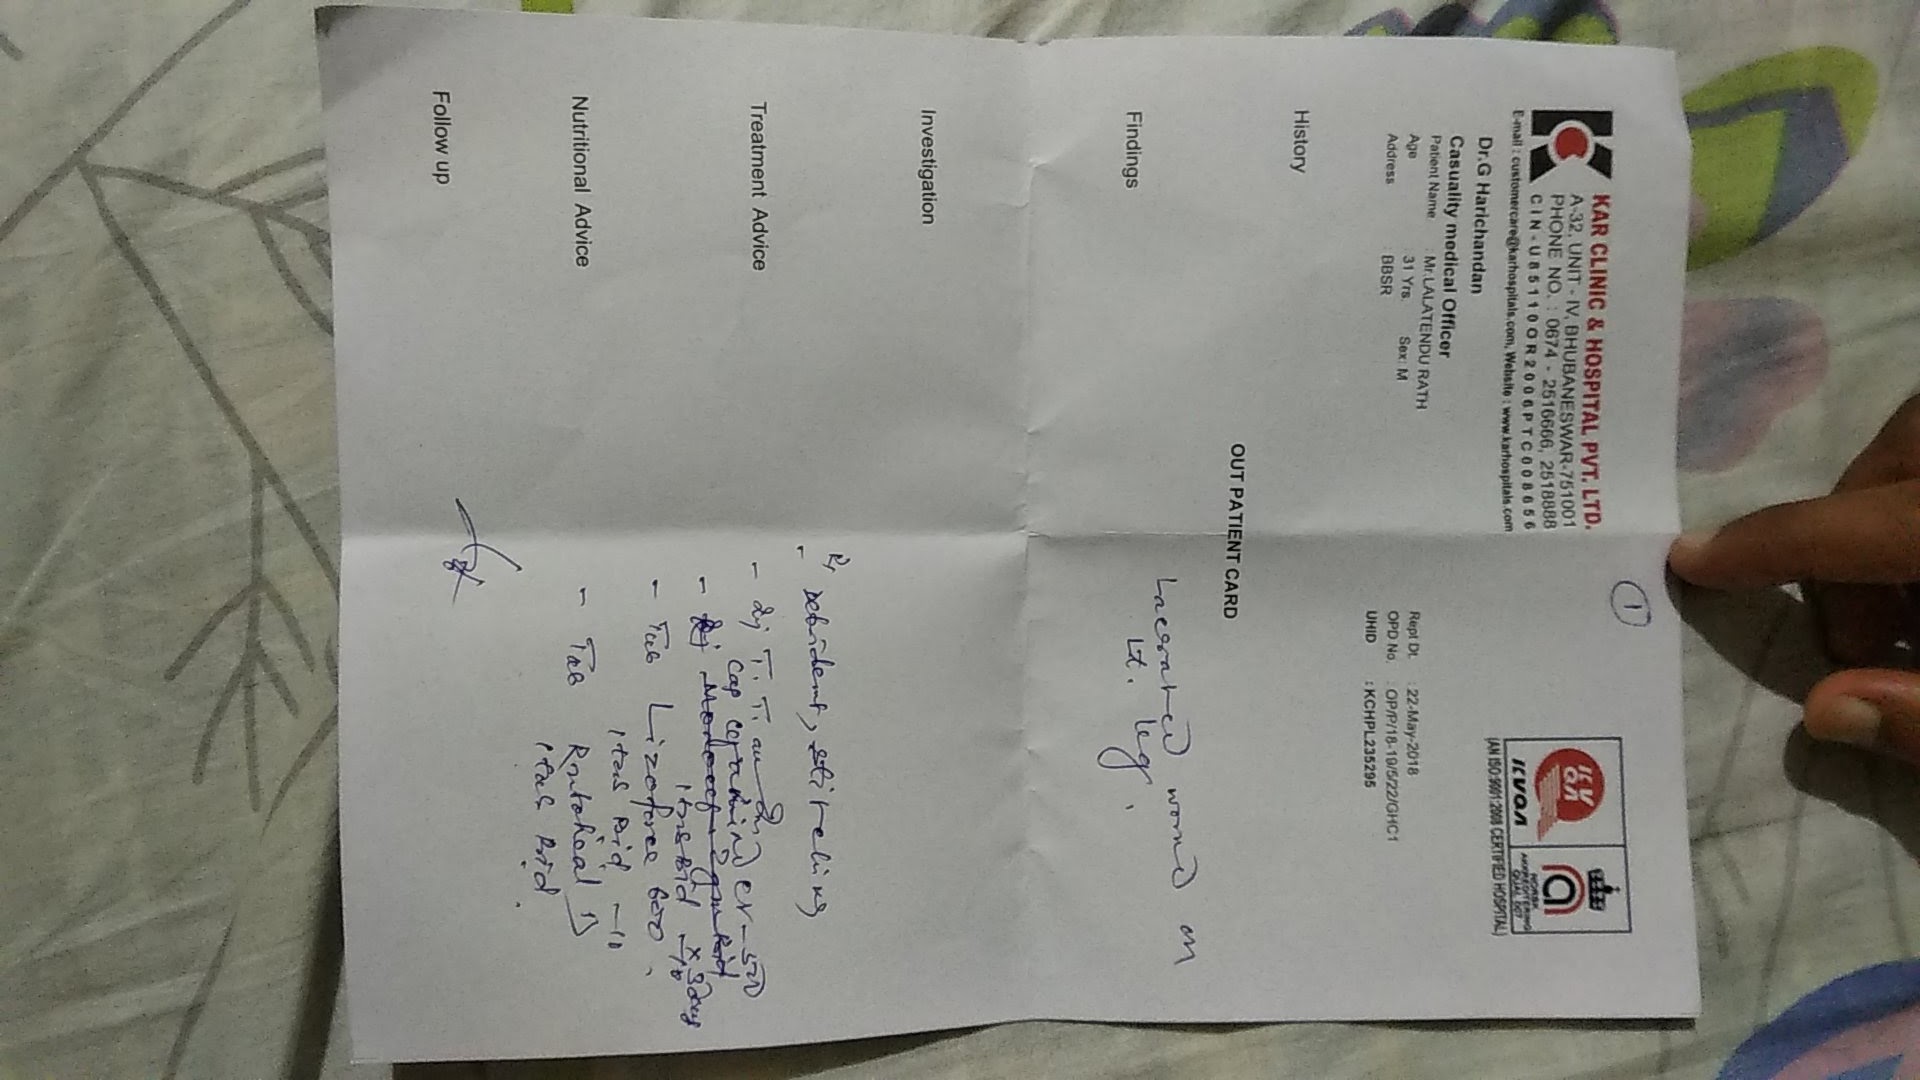 1
KAR CLINIC & HOSPITAL PVT. LTD.
A-32, UNIT - IV, BHUBANESWAR-751001
PHONE NO. : 0674 - 2516666, 2518888
CIN-U85110OR2006PTC008656
E-mail : customercare@karhospitals.com, Website : www.karhospitals.com
IKVQA
(AN ISO:9001:2008 CERTIFIED HOSPITAL)
Dr.G Harichandan
Casuality medical Officer
Patient Name : Mr.LALATENDU RATH
Age : 31 Yrs. Sex: M
Address : BBSR
Rept Dt. : 22-May-2018
OPD No. : OP/P/18-19/5/22/GHC1
UHID : KCHPL235295
OUT PATIENT CARD
History
Findings
Lacerated wound on
Lt. leg.
Investigation
Treatment Advice
- Debridemt, stitching
- Inj T.T.
Cap
- Tab Lizoforce 600
1 tab Bid - 10
- Tab Rantoheal D
1 tab Bid.
Nutritional Advice
Follow up